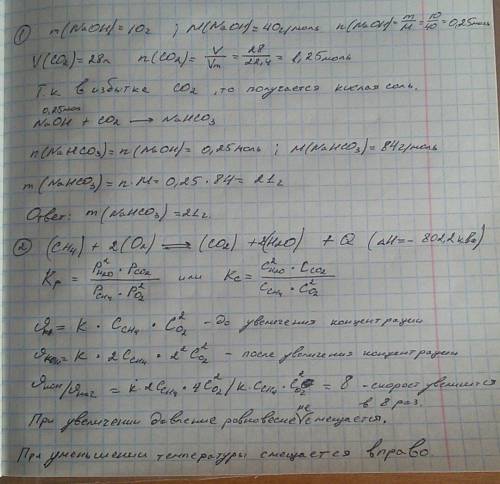 ① m(NaOH)=10г ; M(NaOH)=40г/моль n(NaOH)=m/M=10/40=0,25моль
V(CO₂)=28л n(CO₂)=V/Vm=28/22,4=1,25моль
Т.к в избытке CO₂, то получается кислая соль.
0,25моль
NaOH + CO₂ → NaHCO₃
n(NaHCO₃)=n(NaOH)= 0,25моль ; M(NaHCO₃)=84г/моль
m(NaHCO₃)=n·M=0,25·84=21г
Ответ: m(NaHCO₃)=21г.
② (CH₄) + 2(O₂) ⇌ (CO₂) + 2(H₂O) + Q (ΔH=- 802,2 кДж)
Kp = P²H₂O · PCO₂ / PCH₄ · P²O₂ или Kc = C²H₂O · CCO₂ / CCH₄ · C²O₂
= k · CCH₄ · C²O₂ - до увеличения концентрации
= k · 2CCH₄ · 2²C²O₂ - после увеличения концентрации
= k·2CCH₄·4C²O₂/k·CCH₄·C²O₂ = 8 - скорость увеличится
в 8 раз.
При увеличении давление равновесие не смещается.
При уменьшении температуры смещается вправо.